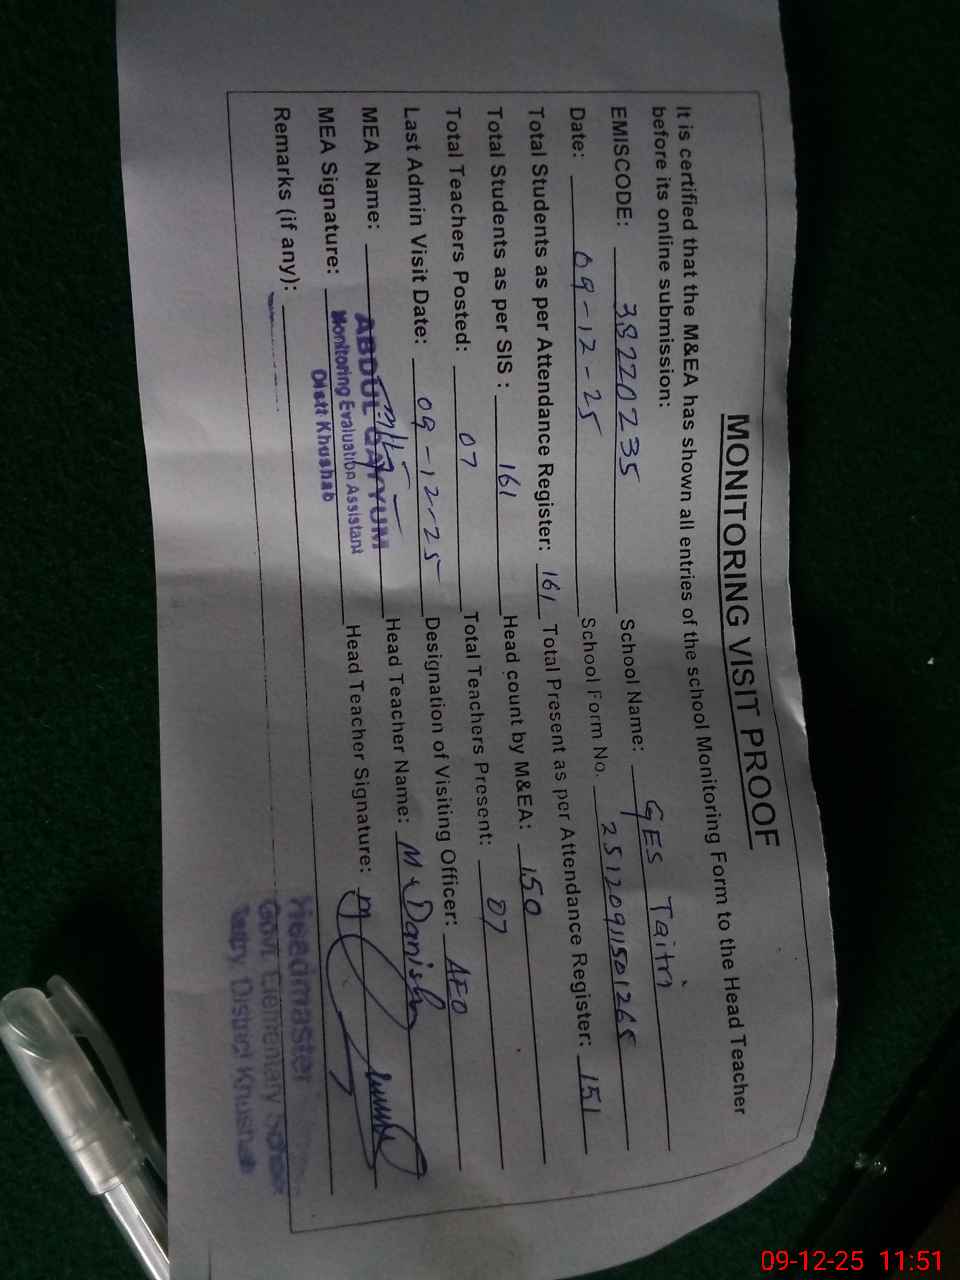 MONITORING VISIT PROOF
It is certified that the M&EA has shown all entries of the school Monitoring Form to the Head Teacher
before its online submission:
EMISCODE: 38220235 School Name: GES Taitri
Date: 09-12-25 School Form No. 25120911501265
Total Students as per Attendance Register: 161 Total Present as per Attendance Register: 151
Total Students as per SIS : 161 Head count by M&EA: 150
Total Teachers Posted: 07 Total Teachers Present: 07
Last Admin Visit Date: 09-12-25 Designation of Visiting Officer: AEO
MEA Name: ABDUL QAYYUM Head Teacher Name: M. Danish
Monitoring Evaluation Assistant
Distt Khushab
MEA Signature: Head Teacher Signature:
Remarks (if any):
Headmaster
Govt. Elementary School
District Khushab
09-12-25 11:51